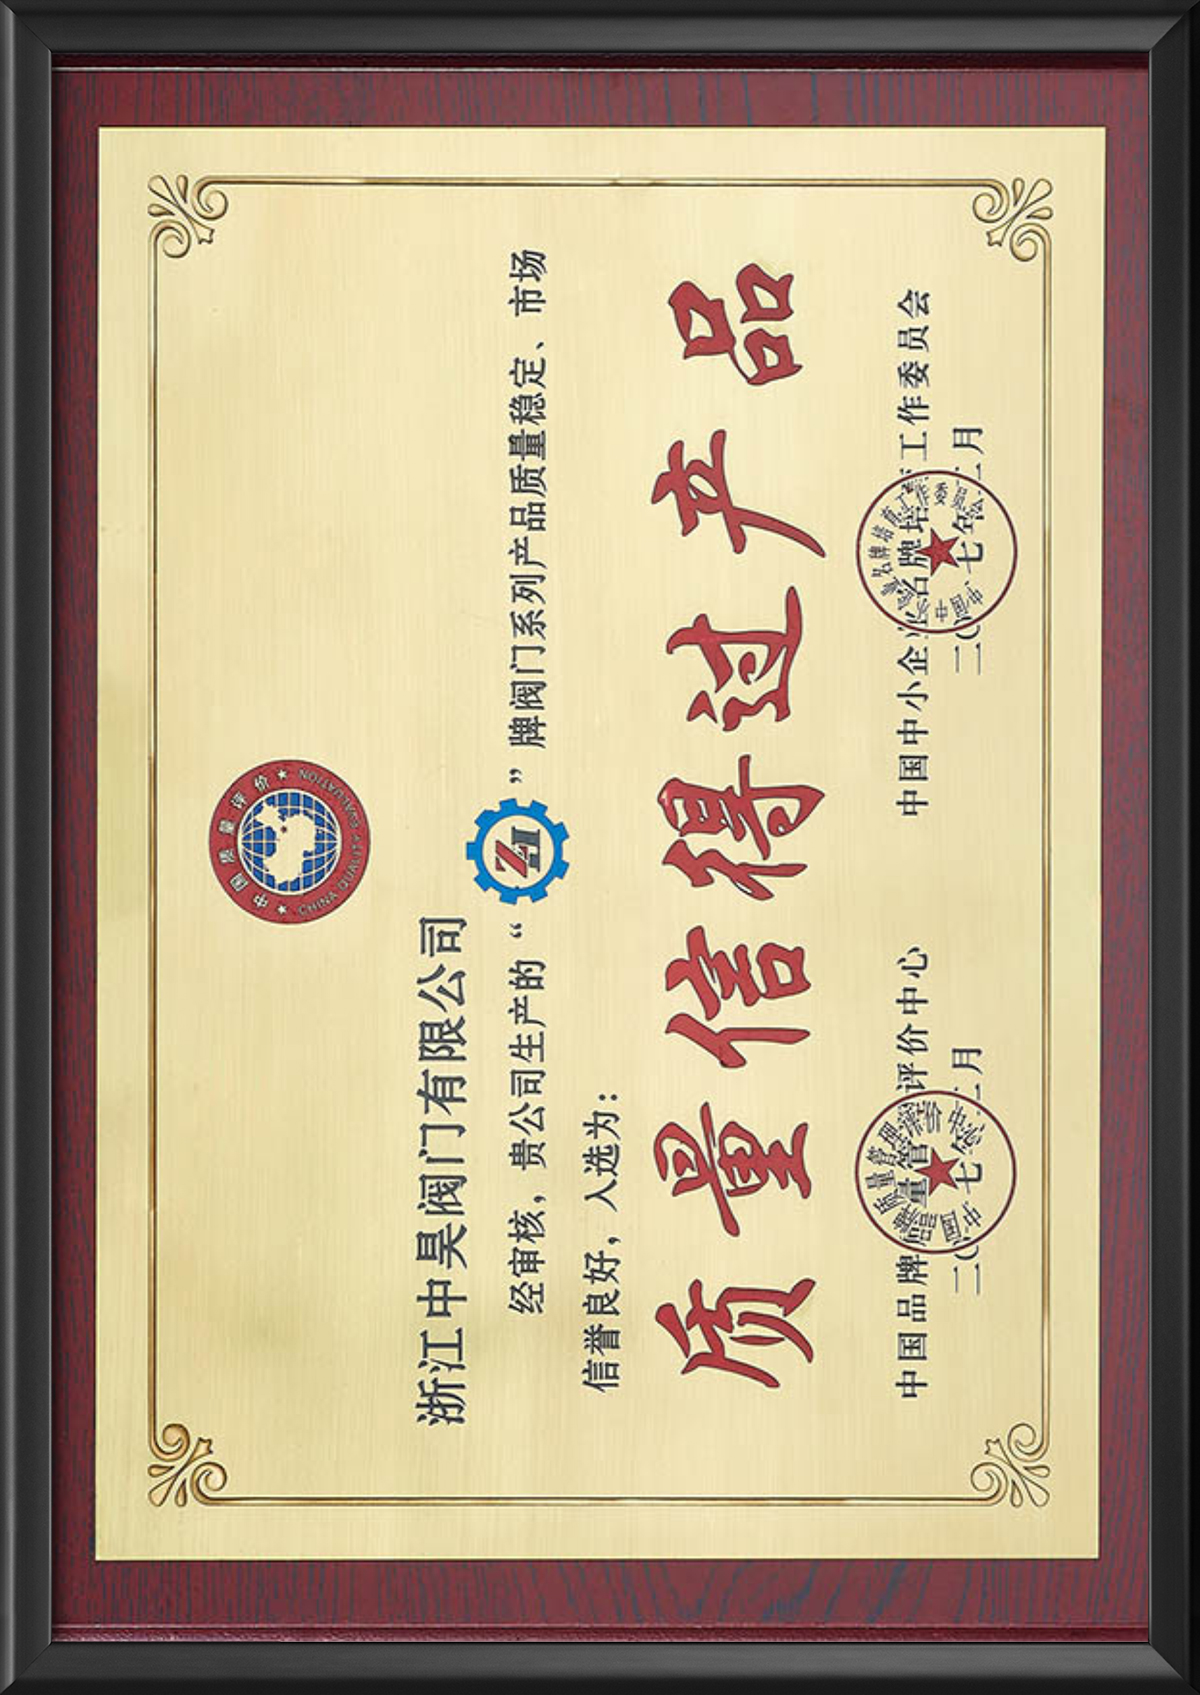 中国质量评价
CHINA QUALITY EVALUATION
浙江中昊阀门有限公司
经审核，贵公司生产的“ZH”牌阀门系列产品质量稳定、市场
信誉良好，入选为：
质量信得过产品
中国品牌质量管理评价中心
二〇一七年 月
中国中小企业名牌培育工作委员会
二〇一七年 月